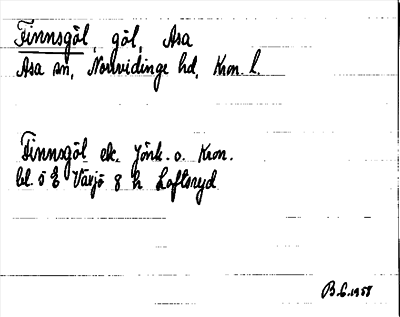 Finnsgöl, göl, Asa
Asa sn, Norrvidinge hd, Kron. l.
Finnsgöl ek. Jönk. o. Kron.
bl. 5 E Växjö 8 h Loftsryd
B.L. 1958